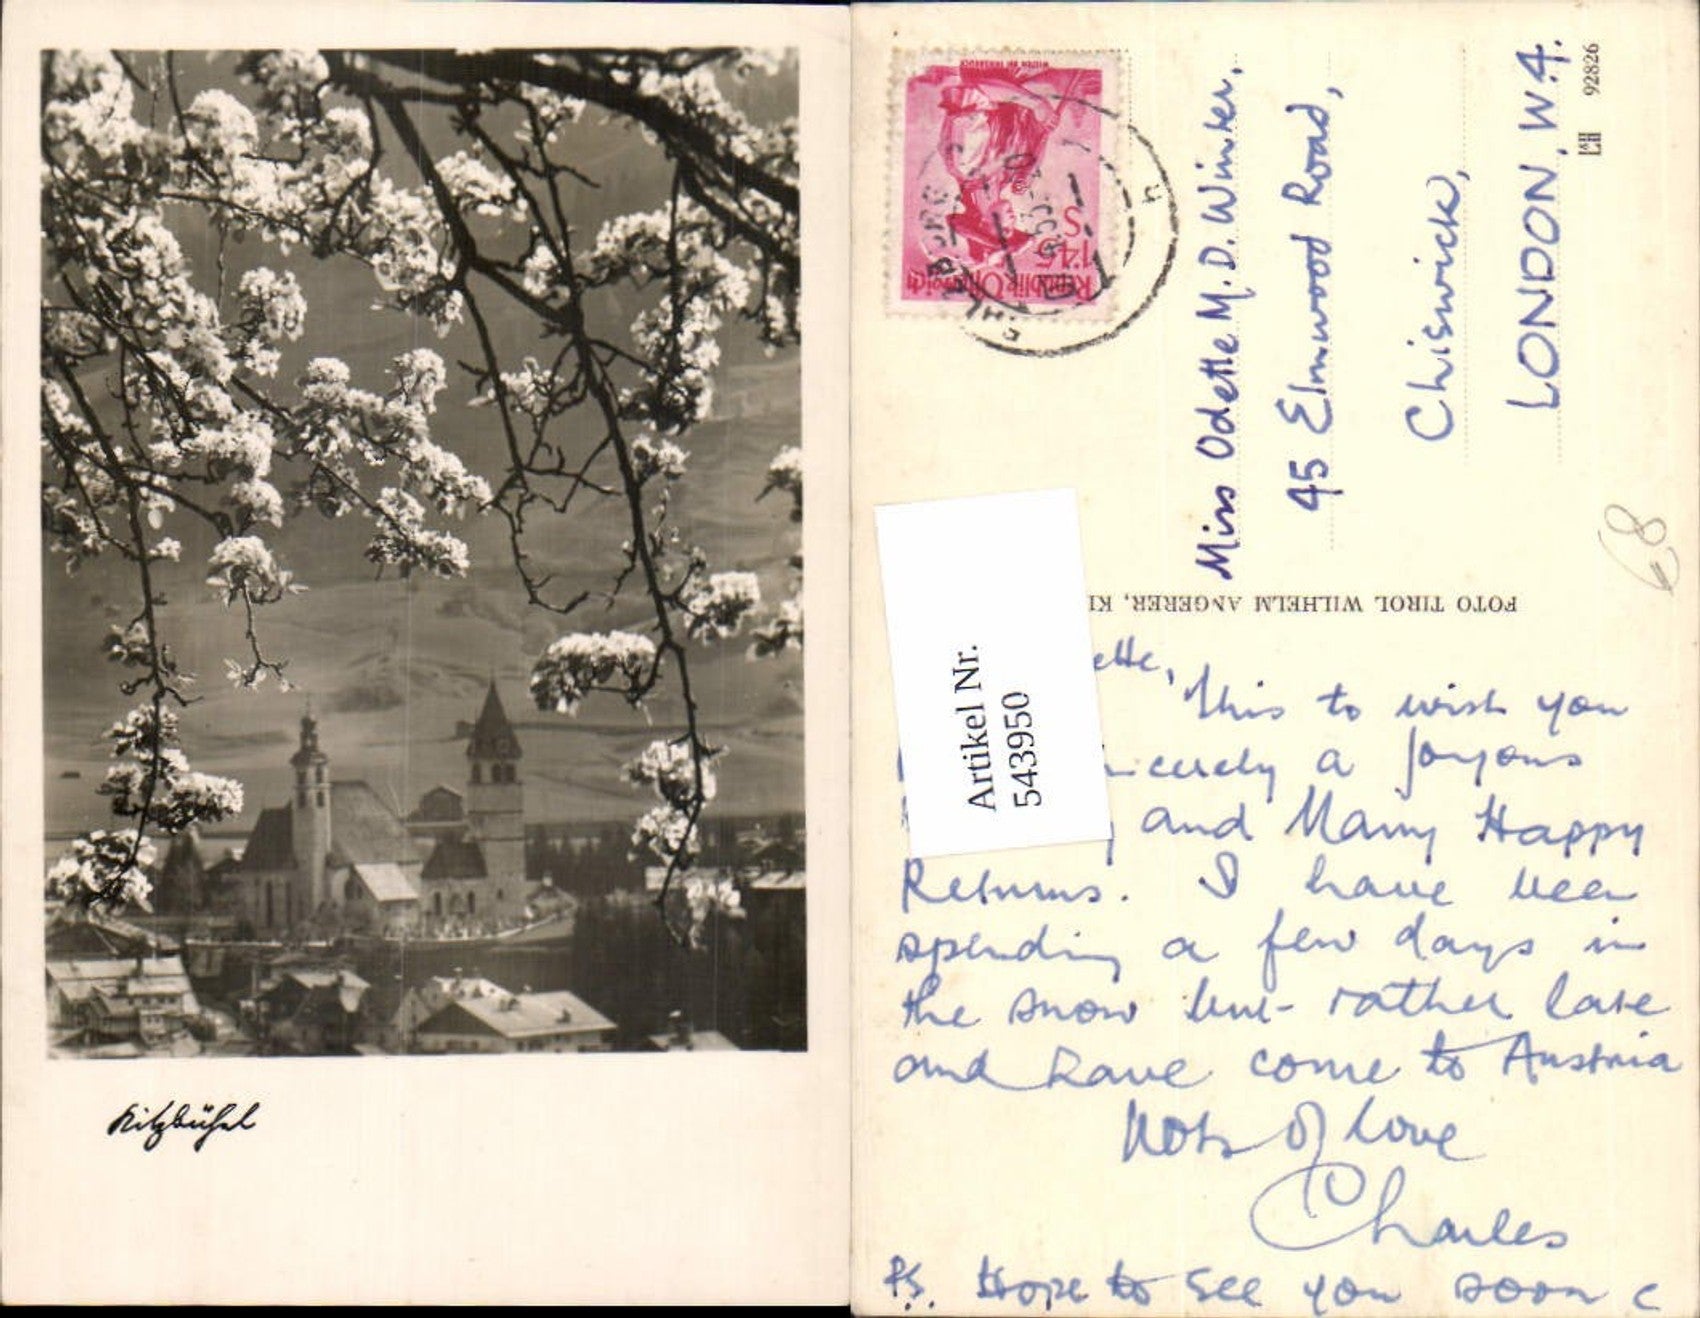 Kitzbühel
Republik Österreich
1.45
S
WILTEN BEI INNSBRUCK
SALZBURG
Miss Odette M. D. Winter,
45 Elmwood Road,
Chiswick,
LONDON, W.4.
92826
68
FOTO TIROL WILHELM ANGERER, KI
Artikel Nr.
543950
ette,
This to wish you
cerely a Joyous
and Many Happy
Returns. I have been
spending a few days in
the snow but rather late
and have come to Austria
Lots of Love
Charles
P.S. Hope to see you soon C